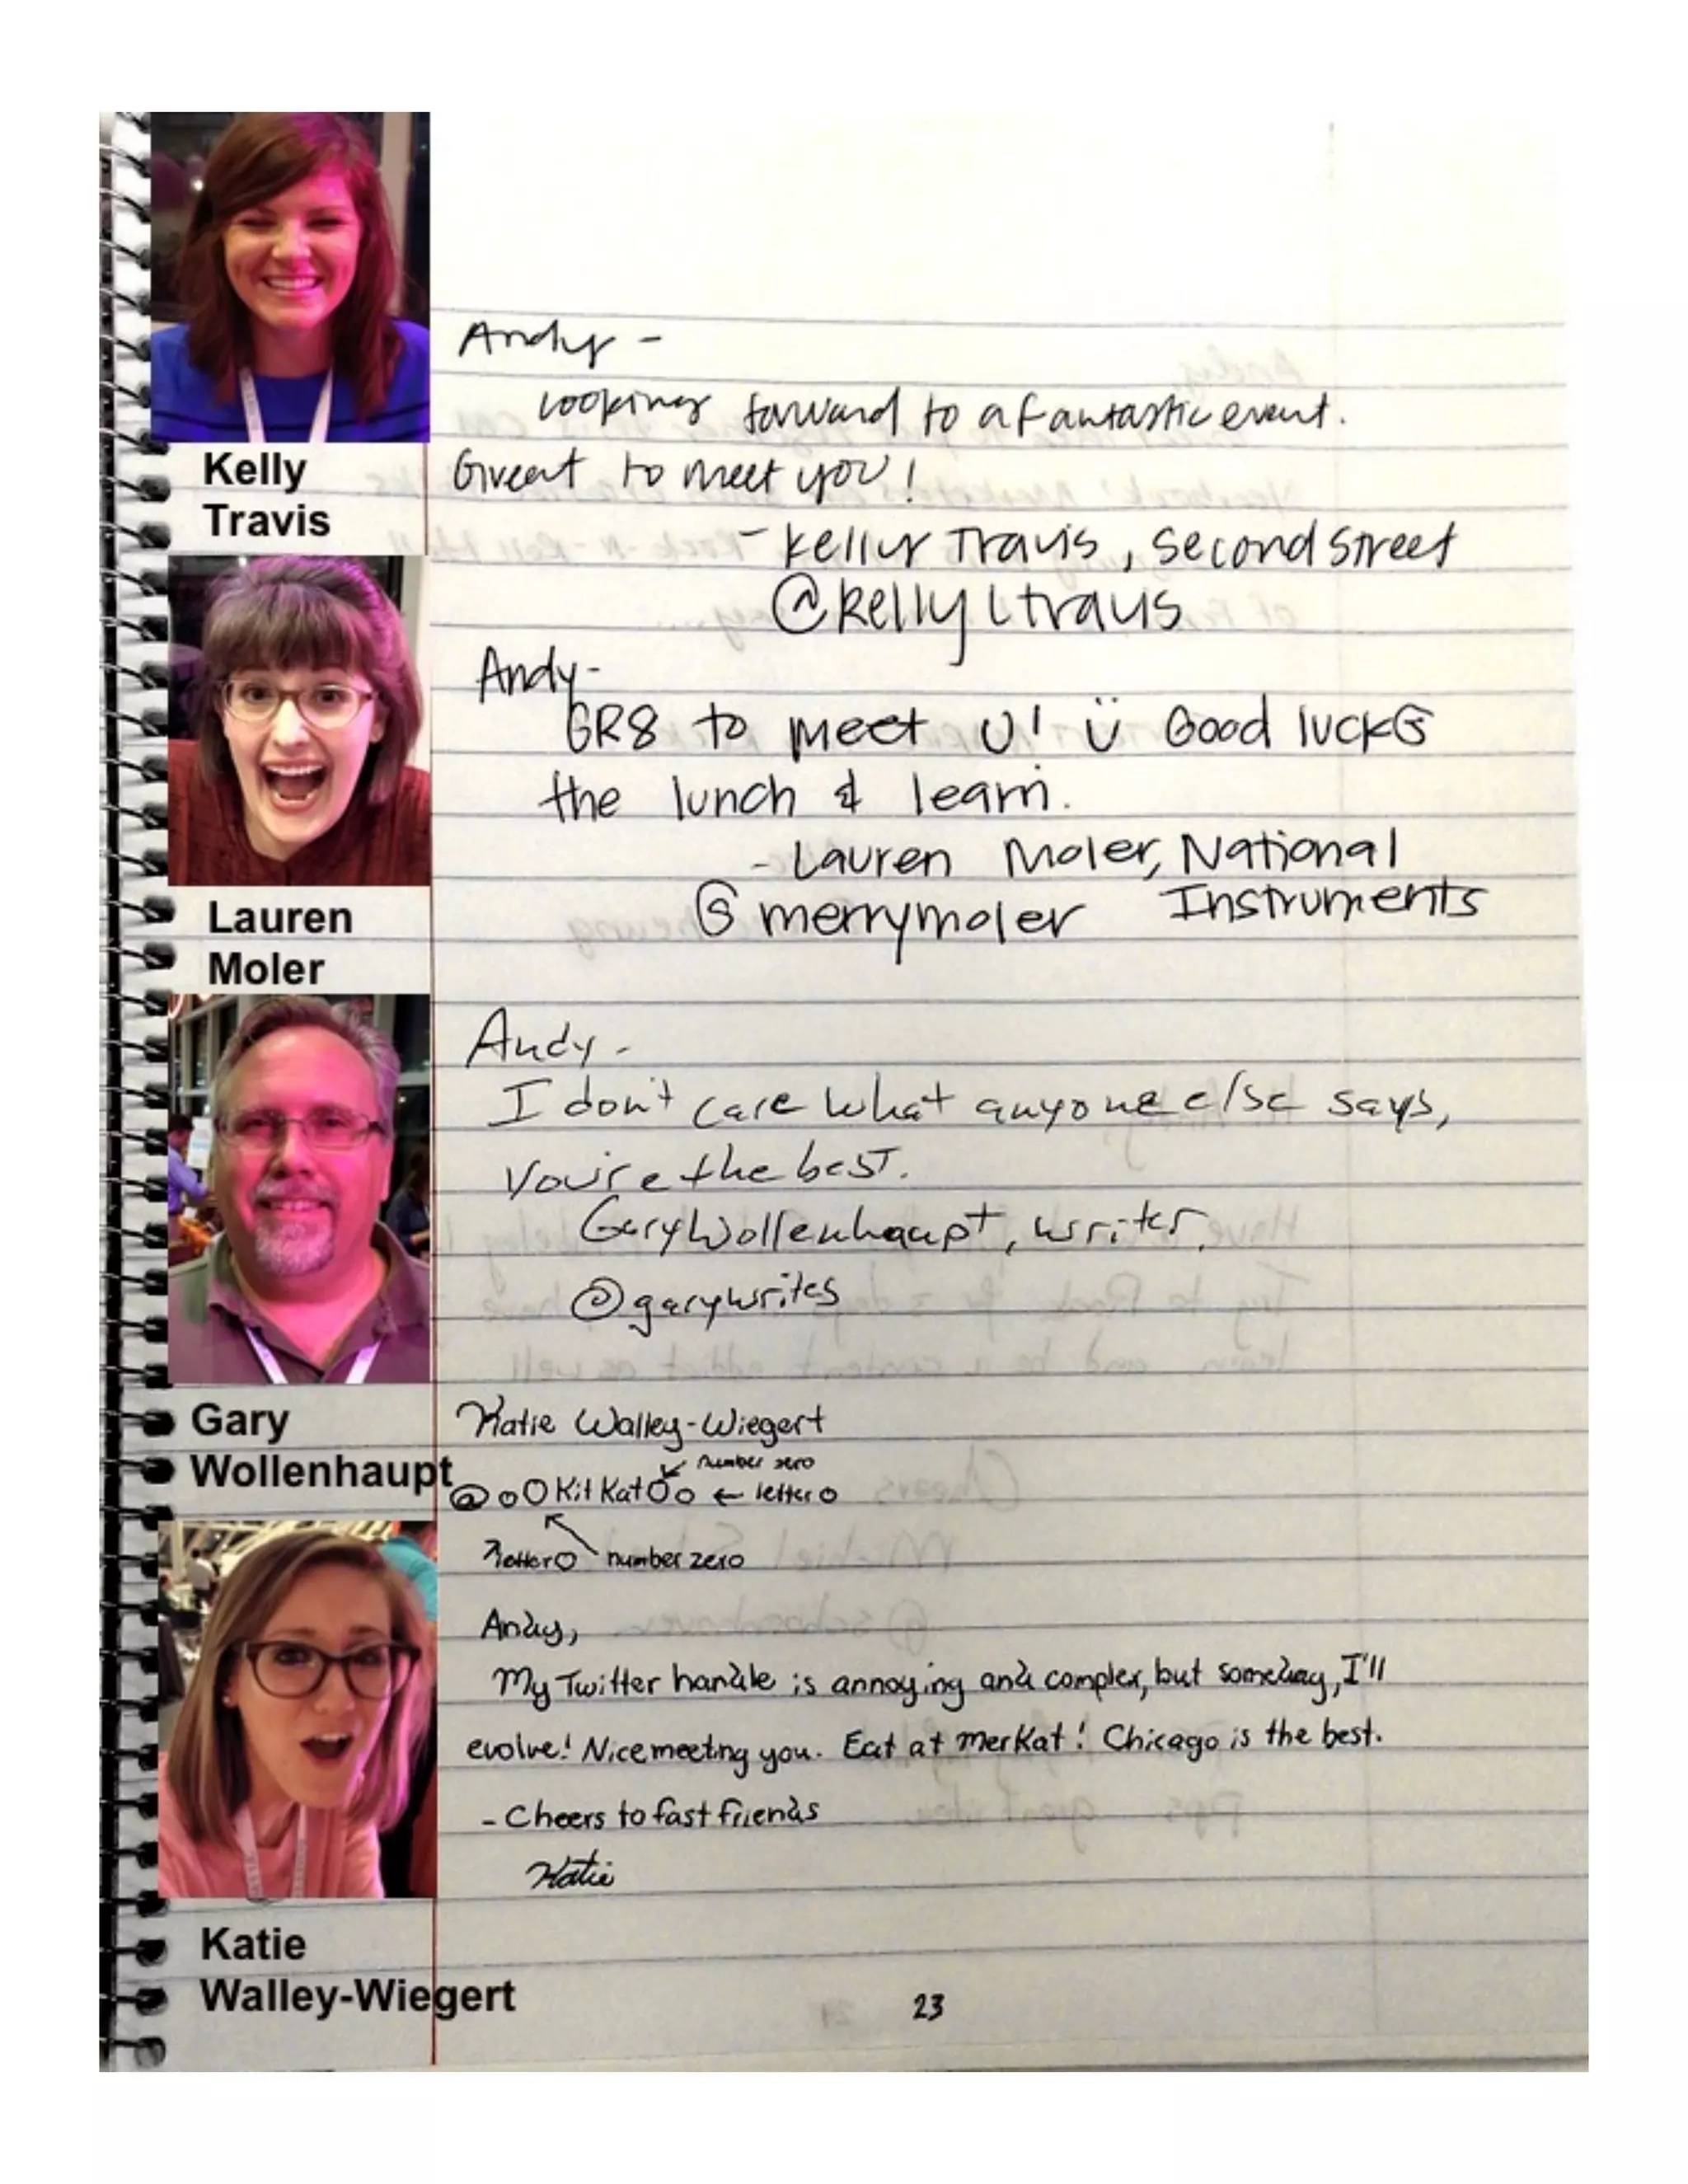 Kelly
Travis
Andy -
Looking forward to a fantastic event.
Great to meet you!
- Kelly Travis, Second Street
@kellyltravis
Lauren
Moler
Andy-
GR8 to meet U! Ü Good luck @
the lunch & learn.
- Lauren Moler, National
Instruments
@merrymoler
Gary
Wollenhaupt
Andy -
I don't care what anyone else says,
You're the best.
Gary Wollenhaupt, writer
@garywrites
Katie
Walley-Wiegert
Katie Walley-Wiegert
number zero
@o0KitKat0o ← letter o
letter o number zero
Andy,
My Twitter handle is annoying and complex, but someday, I'll
evolve! Nice meeting you. Eat at merkat! Chicago is the best.
- Cheers to fast friends
Katie
23